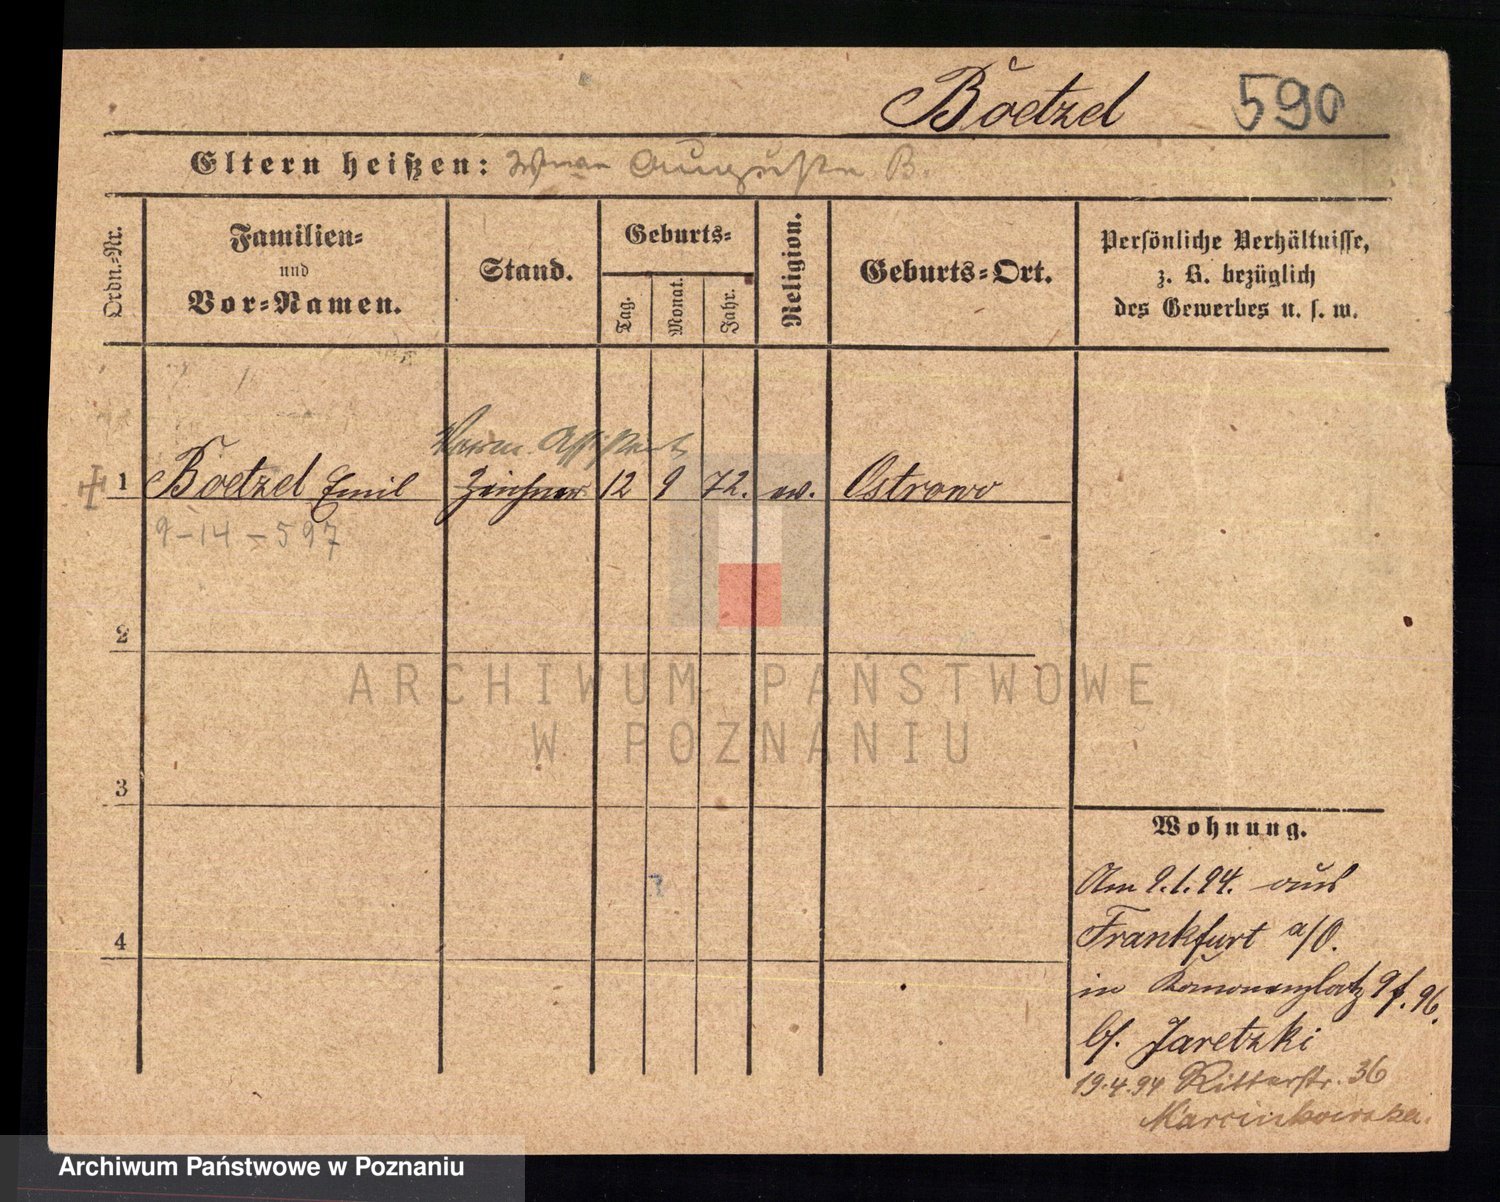 Boetzel 590
Eltern heißen: Wwe Auguste B.
Ordn.-Nr.
Familien-
und
Vor-Namen.
Stand.
Geburts-
Tag.
Monat.
Jahr.
Religion.
Geburts-Ort.
Persönliche Verhältnisse,
z. B. bezüglich
des Gewerbes u. s. w.
Assistent
1 Boetzel Emil Zeichner 12 9 72. ev. Ostrowo
9-14-597
2
3
4
Wohnung.
Am 9.1.94. aus
Frankfurt a/O.
in 96.
b/ Jaretzki
19.4.94 Ritterstr. 36
Marcinkowska.
ARCHIWUM PAŃSTWOWE
W POZNANIU
Archiwum Państwowe w Poznaniu